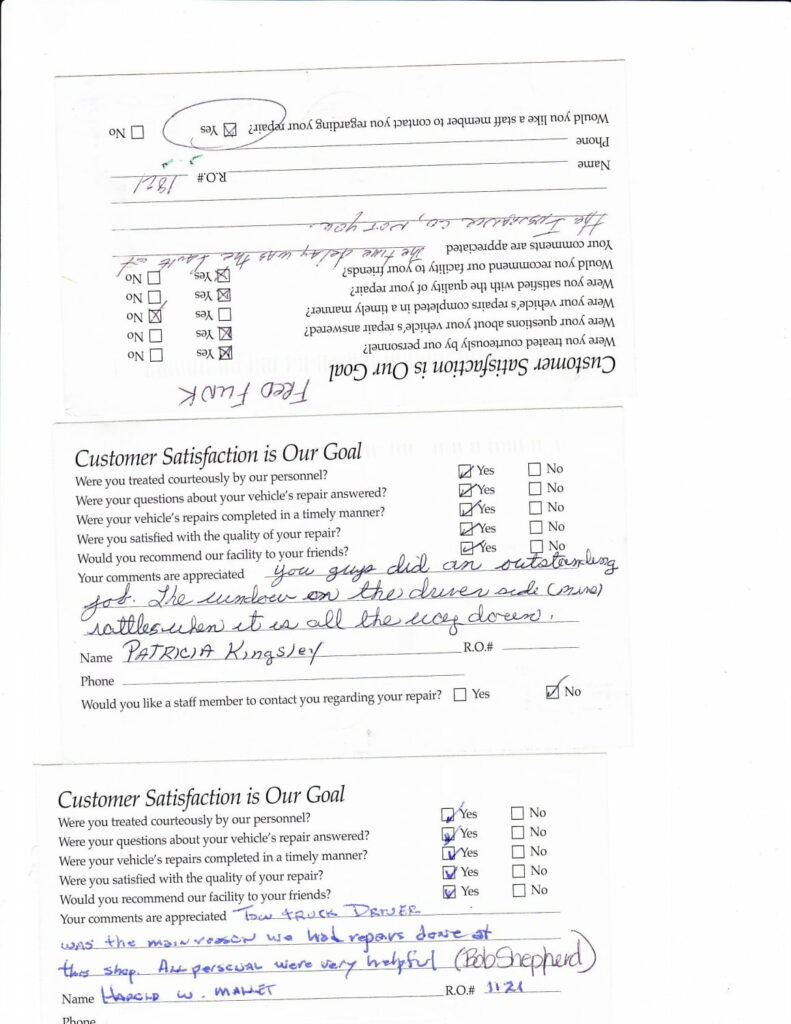 FRED FUNK
Customer Satisfaction is Our Goal
Were you treated courteously by our personnel? ☒ Yes ☐ No
Were your questions about your vehicle's repair answered? ☒ Yes ☐ No
Were your vehicle's repairs completed in a timely manner? ☐ Yes ☒ No
Were you satisfied with the quality of your repair? ☒ Yes ☐ No
Would you recommend our facility to your friends? ☒ Yes ☐ No
Your comments are appreciated The time delay was the fault of
the Insurance Co, not you.
Name R.O.# 1821
Phone
Would you like a staff member to contact you regarding your repair? ☒ Yes ☐ No
Customer Satisfaction is Our Goal
Were you treated courteously by our personnel? ☑ Yes ☐ No
Were your questions about your vehicle's repair answered? ☑ Yes ☐ No
Were your vehicle's repairs completed in a timely manner? ☑ Yes ☐ No
Were you satisfied with the quality of your repair? ☑ Yes ☐ No
Would you recommend our facility to your friends? ☑ Yes ☐ No
Your comments are appreciated you guys did an outstanding
job. The window on the driver side (mine)
rattles when it is all the way down.
Name PATRICIA Kingsley R.O.#
Phone
Would you like a staff member to contact you regarding your repair? ☐ Yes ☑ No
Customer Satisfaction is Our Goal
Were you treated courteously by our personnel? ☑ Yes ☐ No
Were your questions about your vehicle's repair answered? ☑ Yes ☐ No
Were your vehicle's repairs completed in a timely manner? ☑ Yes ☐ No
Were you satisfied with the quality of your repair? ☑ Yes ☐ No
Would you recommend our facility to your friends? ☑ Yes ☐ No
Your comments are appreciated TOW TRUCK DRIVER
was the main reason we had repairs done at
this shop. All personal were very helpful (Bob Shepherd)
Name HAROLD W. MALLET R.O.# 1121
Phone